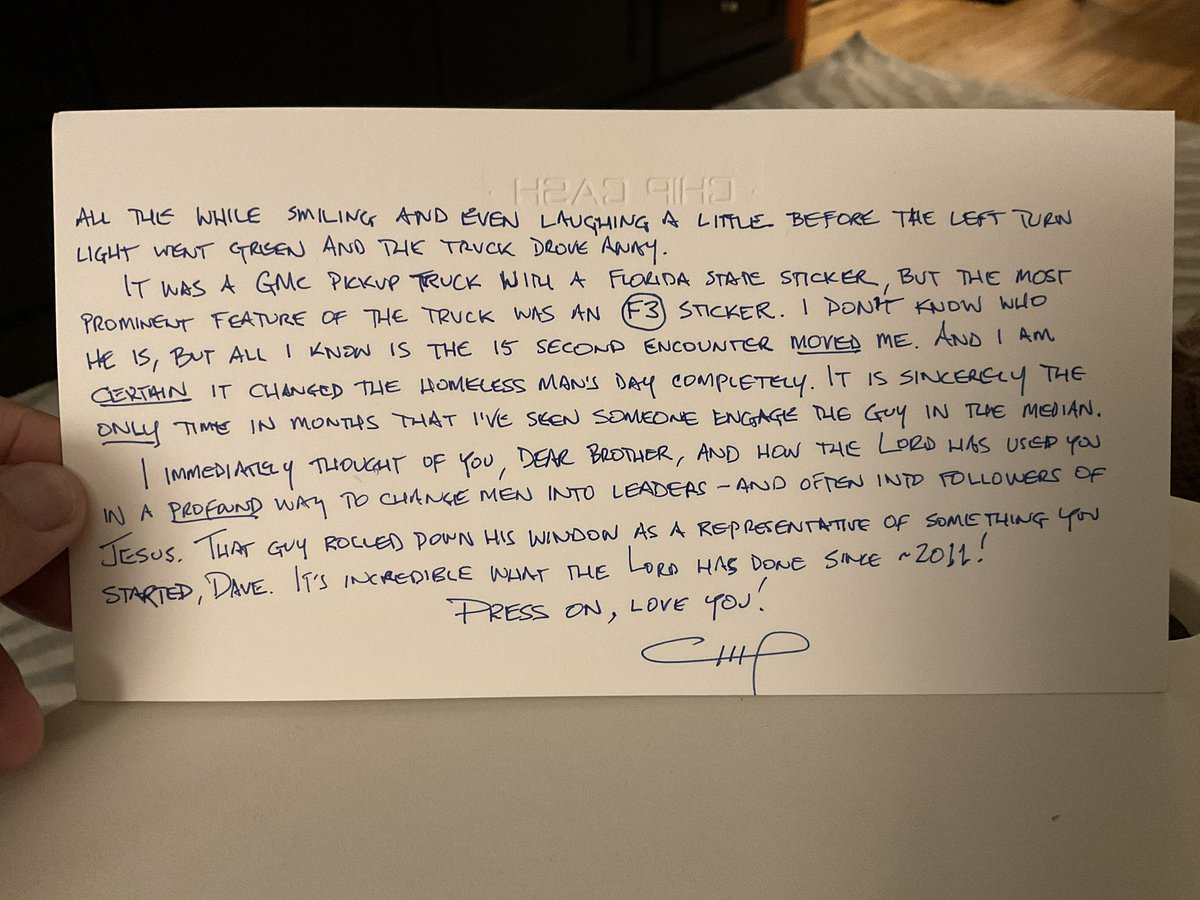 CHIP CASH
ALL THE WHILE SMILING AND EVEN LAUGHING A LITTLE BEFORE THE LEFT TURN
LIGHT WENT GREEN AND THE TRUCK DROVE AWAY.
IT WAS A GMC PICKUP TRUCK WITH A FLORIDA STATE STICKER, BUT THE MOST
PROMINENT FEATURE OF THE TRUCK WAS AN F3 STICKER. I DON'T KNOW WHO
HE IS, BUT ALL I KNOW IS THE 15 SECOND ENCOUNTER MOVED ME. AND I AM
CERTAIN IT CHANGED THE HOMELESS MAN'S DAY COMPLETELY. IT IS SINCERELY THE
ONLY TIME IN MONTHS THAT I'VE SEEN SOMEONE ENGAGE THE GUY IN THE MEDIAN.
I IMMEDIATELY THOUGHT OF YOU, DEAR BROTHER, AND HOW THE LORD HAS USED YOU
IN A PROFOUND WAY TO CHANGE MEN INTO LEADERS – AND OFTEN INTO FOLLOWERS OF
JESUS. THAT GUY ROLLED DOWN HIS WINDOW AS A REPRESENTATIVE OF SOMETHING YOU
STARTED, DAVE. IT'S INCREDIBLE WHAT THE LORD HAS DONE SINCE ~2011!
PRESS ON, LOVE YOU!
CHIP